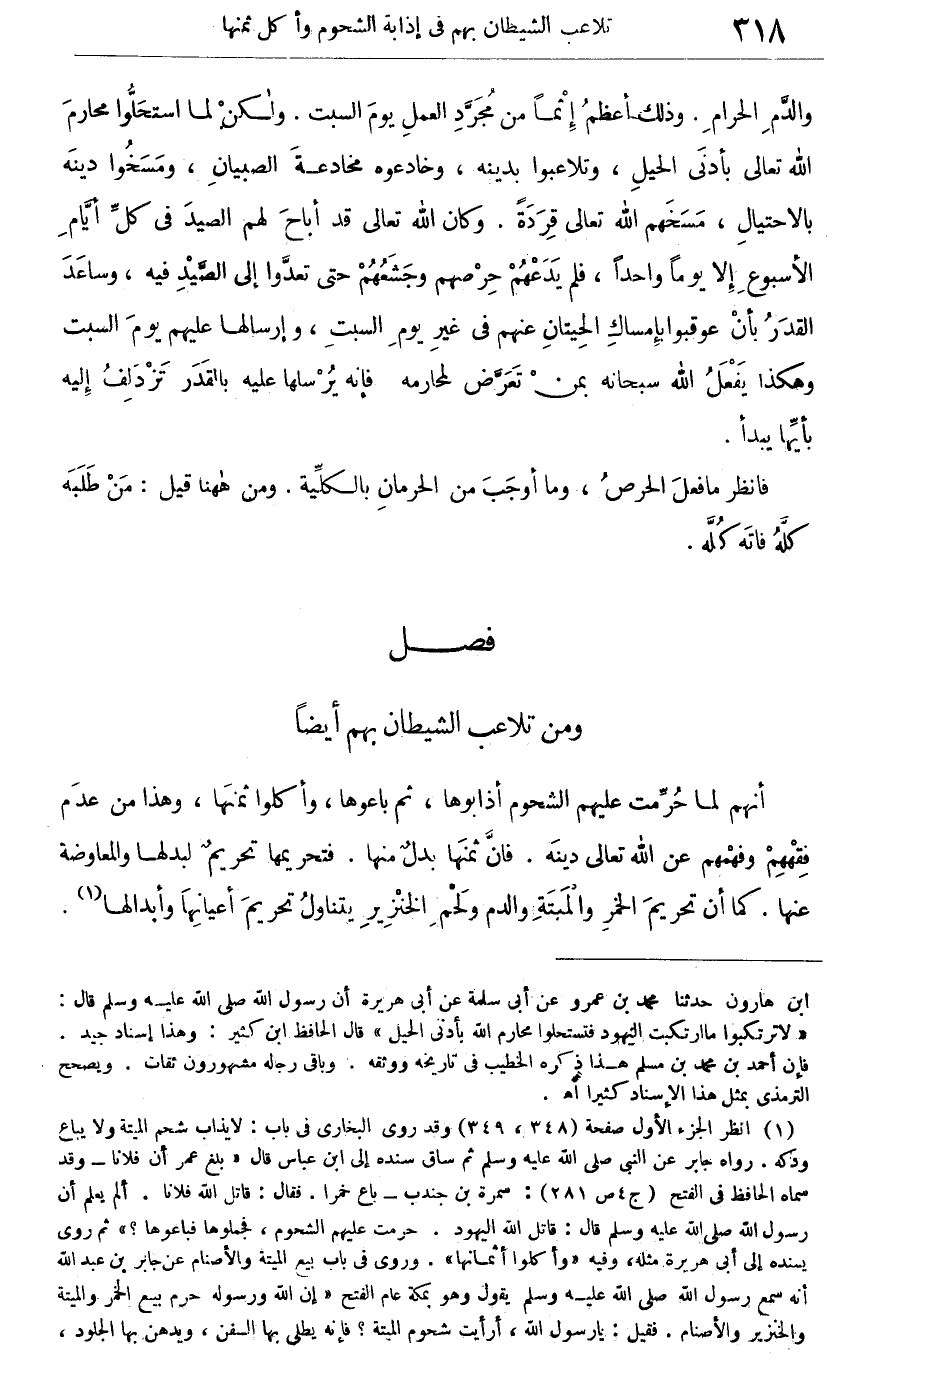 ٣١٨ تلاعب الشيطان بهم فى إذابة الشحوم وأكل ثمنها
والدَّمِ الحرامِ . وذلك أعظمُ إِثْماً من مُجَرَّدِ العملِ يومَ السبت . ولٰكنْ لما استحَلُّوا محارمَ
الله تعالى بأدنَى الحيلِ ، وتلاعبوا بدينه ، وخادعوه مخادعةَ الصبيانِ ، ومَسَخُوا دينَه
بالاحتيالِ ، مَسَخَهم الله تعالى قِرَدَةً . وكان الله تعالى قد أباحَ لهم الصيدَ فى كلِّ أيَّامِ
الأسبوعِ إلا يوماً واحداً ، فلم يَدَعْهُمْ حِرْصهم وجَشَعُهُمْ حتى تعدَّوا إلى الصَّيْدِ فيه ، وساعَدَ
القدَرُ بأنْ عوقبوا بإمساكِ الحِيتانِ عنهم فى غيرِ يومِ السبتِ ، وإرسالها عليهم يومَ السبت
وهكذا يَفْعَلُ الله سبحانه بمن تَعَرَّض لمحارمه فإنه يُرْسلها عليه بالقَدَر تَزْدَلِفُ إليه
بأيِّها يبدأ .
فانظر مافعلَ الحرصُ ، وما أوجَبَ من الحرمانِ بالكلِّية . ومن ههنا قيل : مَنْ طَلَبَه
كلَّهُ فاتَه كُلُّه .
فصل
ومن تلاعب الشيطان بهم أيضاً
أنهم لما حُرِّمت عليهم الشحوم أذابوها ، ثم باعوها ، وأكلوا ثمنَها ، وهذا من عدَم
فِقْهِهِمْ وفهْمهم عن الله تعالى دينَه . فانَّ ثمنَها بدلٌ منها . فتحريمها تحريمٌ لبدلها والمعاوضة
عنها . كما أن تحريمَ الخمرِ والْمَيتَةِ والدم ولَحْمِ الخنْزِيرِ يتناولُ تحريمَ أعيانِهاَ وأبدالها (١) .
ابن هارون حدثنا محمد بن عمرو عن أبى سلمة عن أبى هريرة أن رسول الله صلى الله عليه وسلم قال :
« لاترتكبوا ماارتكبت اليهود فتستحلوا محارم الله بأدنى الحيل » قال الحافظ ابن كثير : وهذا إسناد جيد .
فإن أحمد بن محمد بن مسلم هذا ذكره الخطيب فى تاريخه ووثقه . وباقى رجاله مشهورون ثقات . ويصحح
الترمذى بمثل هذا الإسناد كثيرا أه .
(١) انظر الجزء الأول صفحة (٣٤٨ ، ٣٤٩) وقد روى البخارى فى باب : لايذاب شحم الميتة ولا يباع
ودكه . رواه جابر عن النبي صلى الله عليه وسلم ثم ساق سنده إلى ابن عباس قال « بلغ عمر أن فلانا ــ وقد
سماه الحافظ فى الفتح (ج٤ص ٢٨١) : سمرة بن جندب ــ باع خمرا . فقال : قاتل الله فلانا . ألم يعلم أن
رسول الله صلى الله عليه وسلم قال : قاتل الله اليهود . حرمت عليهم الشحوم ، فجملوها فباعوها ؟» ثم روى
بسنده إلى أبى هريرة مثله، وفيه «وأكلوا أثمانها» . وروى فى باب بيع الميتة والأصنام عن جابر بن عبد الله
أنه سمع رسول الله صلى الله عليه وسلم يقول وهو بمكة عام الفتح « إن الله ورسوله حرم بيع الخمر والميتة
والخنزير والأصنام . فقيل : يارسول الله ، أرأيت شحوم الميتة ؟ فإنه يطلى بها السفن ، ويدهن بها الجلود ،